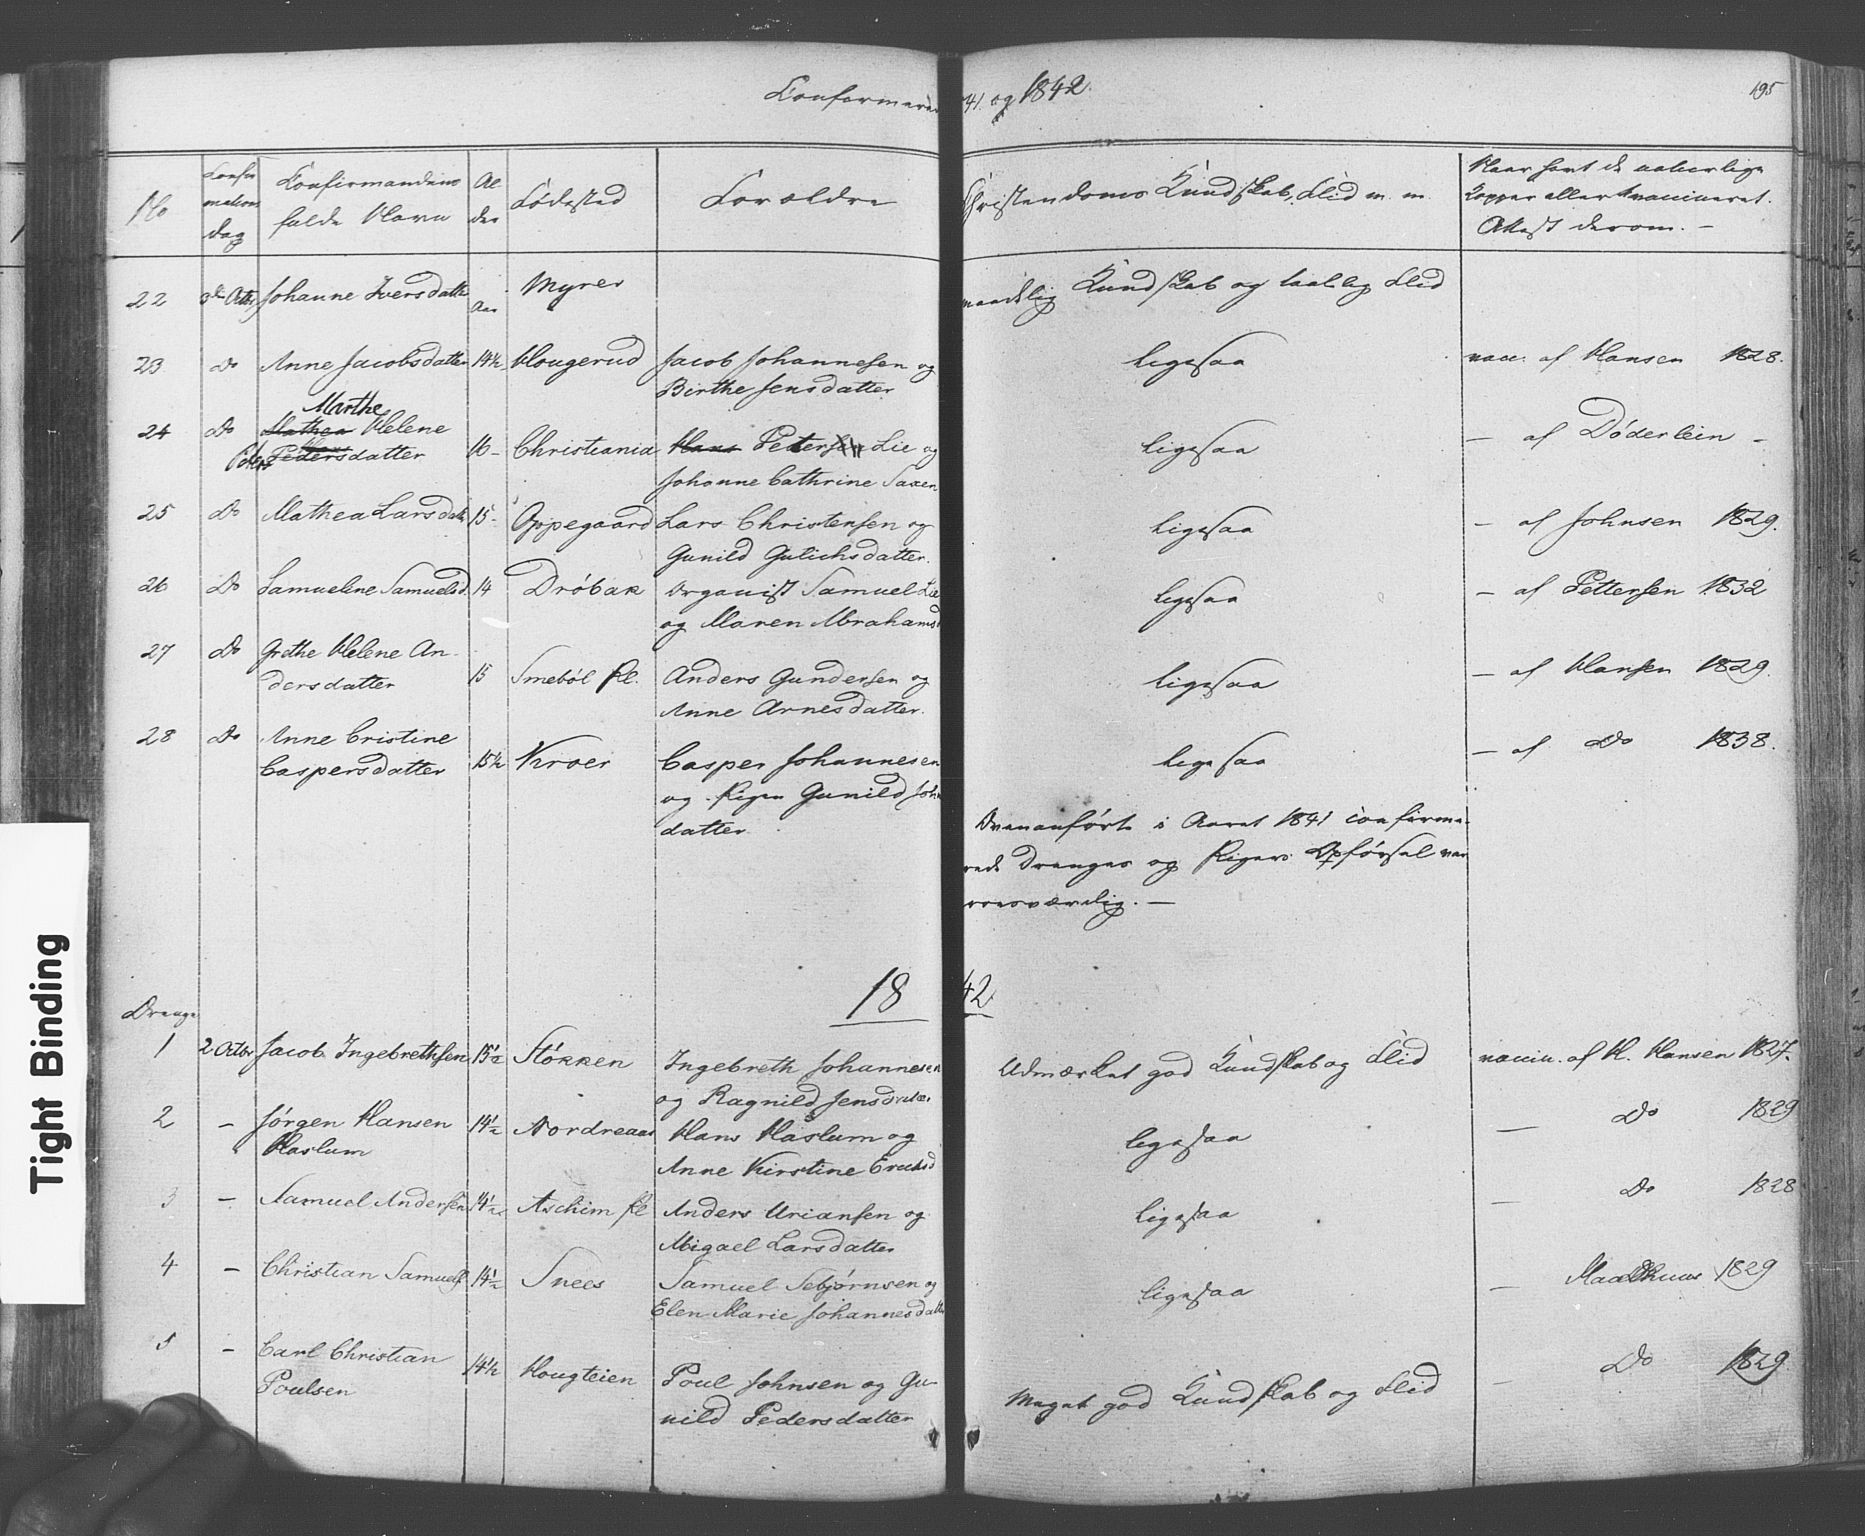 Confirmere 41. og 1842. 195
No
Confir
mations
dag
Confirmandens
fulde Navn
Al
der
Fødested
Forældre
Christendoms Kundskab, Flid m. m.
Naar havt de naturlige
Kopper eller vaccineret.
Attest derom. —
22 3die Octbr Johanne Iversdatter Aar Myrer
maadelig Kundskab og taalelig Flid
23 Do Anne Jacobsdatter 14½ Hougerud Jacob Johannesen og
Birthe Jensdatter
ligesaa vacc. af Hansen 1828.
Marthe
24 Do Mathea Helene
Peters Pedersdatter 16 – Christiania Hans Petersen Lie og
Johanne Cathrine Saxen
ligesaa — af Døderlein –
25 Do Mathea Larsdatter 15 – Oppegaard Lars Christensen og
Gunild Gulichsdatter.
ligesaa — af Johnsen 1829.
26 Do Samueline Samuelsd. 14 Drøbak Organist Samuel Lie
og Maren Abrahamsd
ligesaa — af Pettersen 1832
27 Do Grethe Helene An-
dersdatter 15 Smebøl Pl. Anders Gundersen og
Anne Arnesdatter.
ligesaa — af Hansen 1829.
28 Do Anne Cristine
Caspersdatter 15½ Kroer Casper Johannesen
og Pigen Gunild Joh
datter
ligesaa — af Do 1838.
Ovenanførte i Aaret 1841 confirme-
rede Drenges og Pigers Opførsel var
roesværdig. —
18 42.
Drenge
1 2 Octbr Jacob Ingebrethsen 15½ Støkken Ingebreth Johannesen
og Ragnild Jensdatter
Udmærket god Kundskab og Flid vaccin. af H. Hansen 1827.
2 – Jørgen Hansen
Haslum 14½ Nordreaas Hans Haslum og
Anne Kirstine Ericksd
ligesaa — Do 1829
3 – Samuel Andersen 14½ Aschim Pl Anders Uriansen og
Abigael Larsdatter
ligesaa — Do 1828
4 – Christian Samuels. 14½ Snees Samuel Sebjørnsen og
Elen Marie Johannesdatter
ligesaa — 1829
5 – Carl Christian
Poulsen 14½ Hougteien Poul Johnsen og Gu-
nild Pedersdatter
Meget god Kundskab og Flid — Do 1829.
Tight Binding